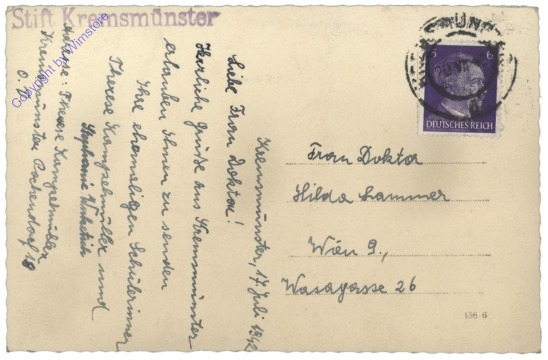 Stift Kremsmünster
Kremsmünster, 17. Juli 1942
Liebe Frau Doktor!
Herzliche Grüße aus Kremsmünster
erlauben Ihnen zu senden
Ihre ehemaligen Schülerinnen
Therese Kampelmüller und
Stephanie
Adresse: Therese Kampelmüller
Kremsmünster Pochendorf 18
O.D.
Frau Doktor
Hilda Lammer
Wien 9.,
Wasagasse 26
6 6
DEUTSCHES REICH
156 6
Copyright by Wimstore